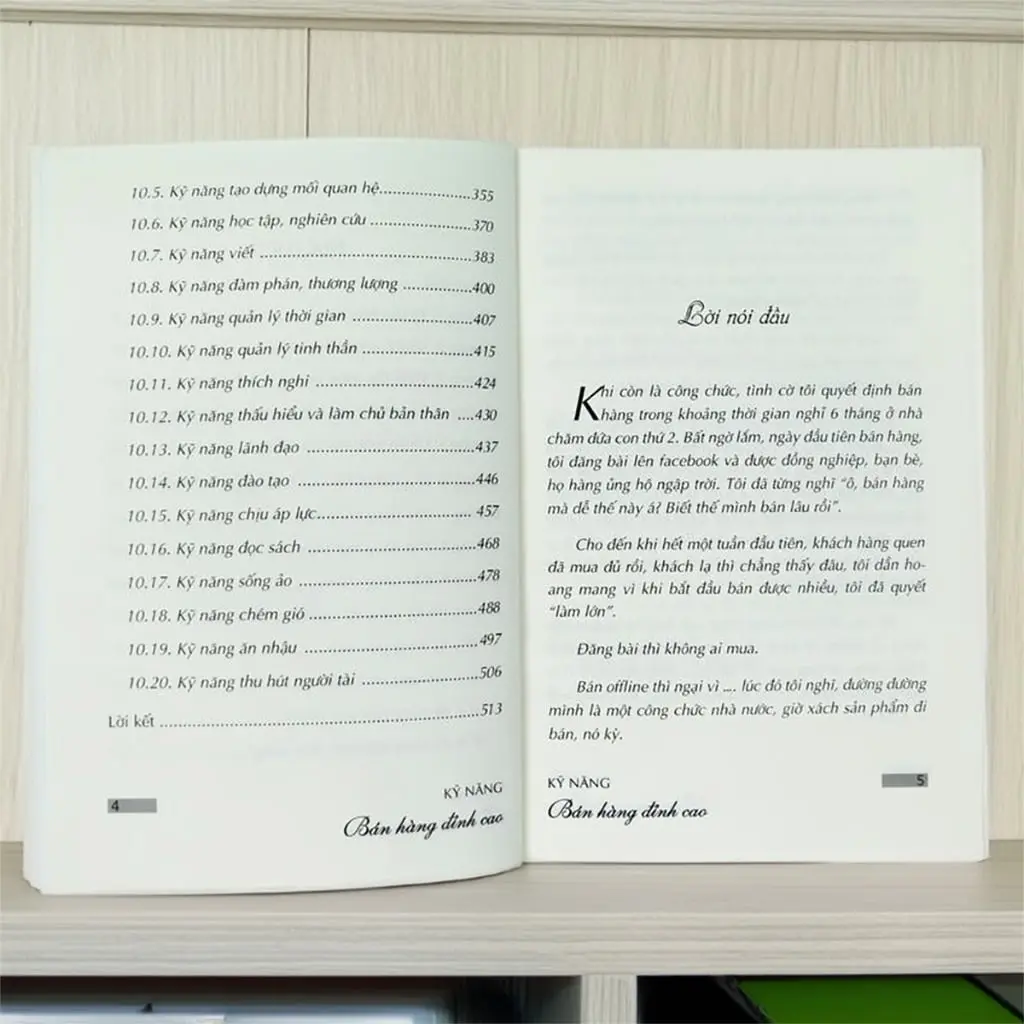 10.5. Kỹ năng tạo dựng mối quan hệ....................355
10.6. Kỹ năng học tập, nghiên cứu ....................370
10.7. Kỹ năng viết ..........................................383
10.8. Kỹ năng đàm phán, thương lượng ..............400
10.9. Kỹ năng quản lý thời gian ........................407
10.10. Kỹ năng quản lý tinh thần ......................415
10.11. Kỹ năng thích nghi ...............................424
10.12. Kỹ năng thấu hiểu và làm chủ bản thân ....430
10.13. Kỹ năng lãnh đạo .................................437
10.14. Kỹ năng đào tạo ...................................446
10.15. Kỹ năng chịu áp lực............................... 457
10.16. Kỹ năng đọc sách .................................468
10.17. Kỹ năng sống ảo ...................................478
10.18. Kỹ năng chém gió .................................488
10.19. Kỹ năng ăn nhậu ..................................497
10.20. Kỹ năng thu hút người tài ......................506
Lời kết ........................................................513
4
KỸ NĂNG
Bán hàng đỉnh cao
Lời nói đầu
Khi còn là công chức, tình cờ tôi quyết định bán
hàng trong khoảng thời gian nghỉ 6 tháng ở nhà
chăm đứa con thứ 2. Bất ngờ lắm, ngày đầu tiên bán hàng,
tôi đăng bài lên facebook và được đồng nghiệp, bạn bè,
họ hàng ủng hộ ngập trời. Tôi đã từng nghĩ “ô, bán hàng
mà dễ thế này á? Biết thế mình bán lâu rồi”.
Cho đến khi hết một tuần đầu tiên, khách hàng quen
đã mua đủ rồi, khách lạ thì chẳng thấy đâu, tôi dần ho-
ang mang vì khi bắt đầu bán được nhiều, tôi đã quyết
“làm lớn”.
Đăng bài thì không ai mua.
Bán offline thì ngại vì .... lúc đó tôi nghĩ, đường đường
mình là một công chức nhà nước, giờ xách sản phẩm đi
bán, nó kỳ.
KỸ NĂNG
Bán hàng đỉnh cao
5